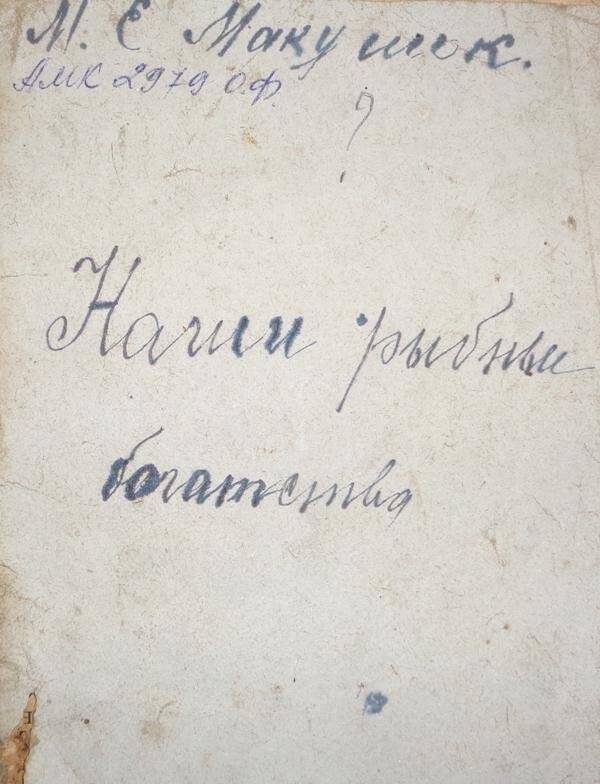 М. Е Макушок.
АМК 2979 О.Ф.
?
Наши рыбные
богатства